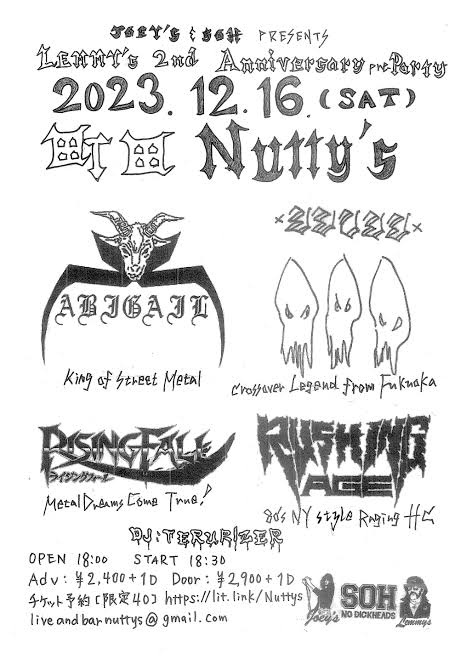 JOEY'S & SOH PRESENTS
LEMMY's 2nd Anniversary pre-Party
2023. 12. 16. (SAT)
町田 Nutty's
ABIGAIL
King of Street Metal
Crossover Legend from Fukuoka
RISING FALL
ライジングフォール
Metal Dreams Come True!
RUSHING
AGE
80s NY style Raging HC
DJ: TERURIZER
OPEN 18:00 START 18:30
Adv: ¥2,400+1D Door: ¥2,900+1D
チケット予約[限定40] https://lit.link/Nuttys
liveandbarnuttys@gmail.com
Joey's
SOH
NO DICKHEADS
Lemmys